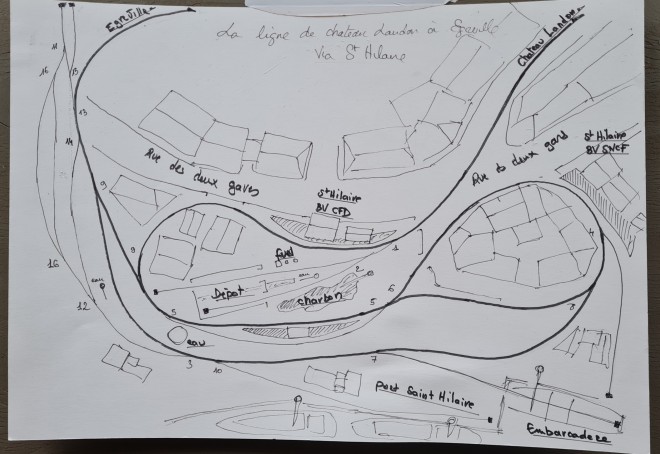 La ligne de chateau Landon à Egreville
Via St Hilaire
Egreville
Chateau Landon
11
16
13
13
14
Rue des deux gares
St Hilaire
BV CFD
Rue des deux gares
St Hilaire
BV SNCF
9
8
4
1
fuel
16
eau
12
Dépot
eau
2
1
charbon
5
5
6
8
eau
3
10
7
Port Saint Hilaire
Embarcadere